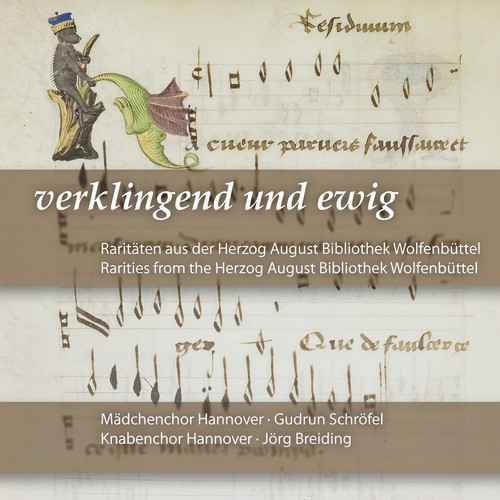 Residuum
a cueur parueis faulsauret
verklingend und ewig
Raritäten aus der Herzog August Bibliothek Wolfenbüttel
Rarities from the Herzog August Bibliothek Wolfenbüttel
ger Que de faulcerce
Mädchenchor Hannover · Gudrun Schröfel
Knabenchor Hannover · Jörg Breiding
ce que